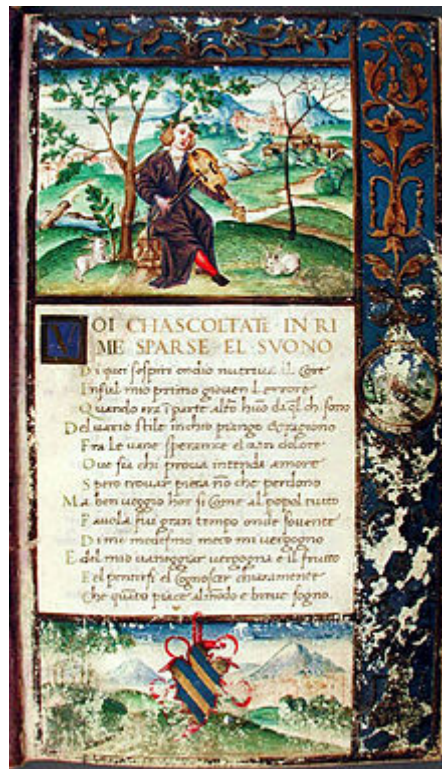 VOI CHASCOLTATE IN RI
ME SPARSE EL SVONO
Di quei sospiri ondio nutriva il core
In sul mio primo giovenil errore
Quando era i parte altro huō da ql chi sono
Del vario stile in chio piango & ragiono
Fra le vane speranze el van dolore
Ove sia chi prova intenda amore
Spero trovar pieta nō che perdono
Ma ben veggio hor si come al popol tutto
Favola fui gran tempo onde sovente
Di me medesmo meco mi vergogno
E del mio vaneggiar vergogna e il frutto
E el pentirsi el cognoscer chiaramente
Che quāto piace al mōdo e breve sogno.